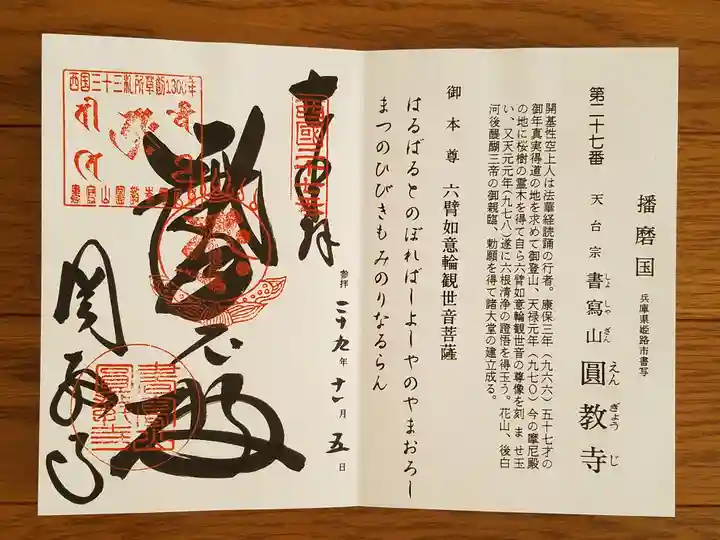 播磨国 兵庫県姫路市書写
第二十七番 天台宗 書寫山 圓教寺
しょ しゃ ざん えん ぎょう じ
開基性空上人は法華経読誦の行者。康保三年(九六六)五十七才の
御年真実得道の地を求めて御登山、天禄元年(九七〇)今の摩尼殿
の地に桜樹の霊木を得て自ら六臂如意輪観世音の尊像を刻ませ玉
い、又天元元年(九七八)遂に六根清浄の證悟を得玉う。花山、後白
河後醍醐三帝の御親臨、勅願を得て諸大堂の建立成る。
御本尊 六臂如意輪観世音菩薩
はるばるとのぼればしよしやのやまおろし
まつのひびきもみのりなるらん
西國二十七番
参拝 二十九年 十一月 五日
西国三十三札所草創1300年
書寫山圓教寺
摩尼殿
圓教寺